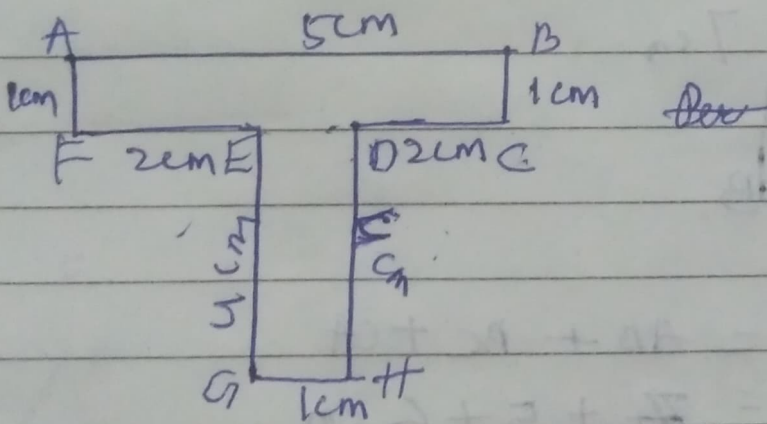 A 5cm B
1cm 1cm
F 2cm E D 2cm C
cm cm
G 1cm H